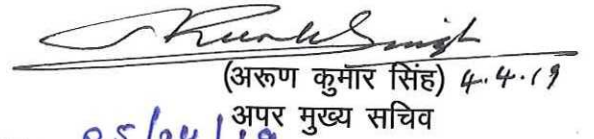 (अरूण कुमार सिंह) 4.4.19
अपर मुख्य सचिव
05/04/19